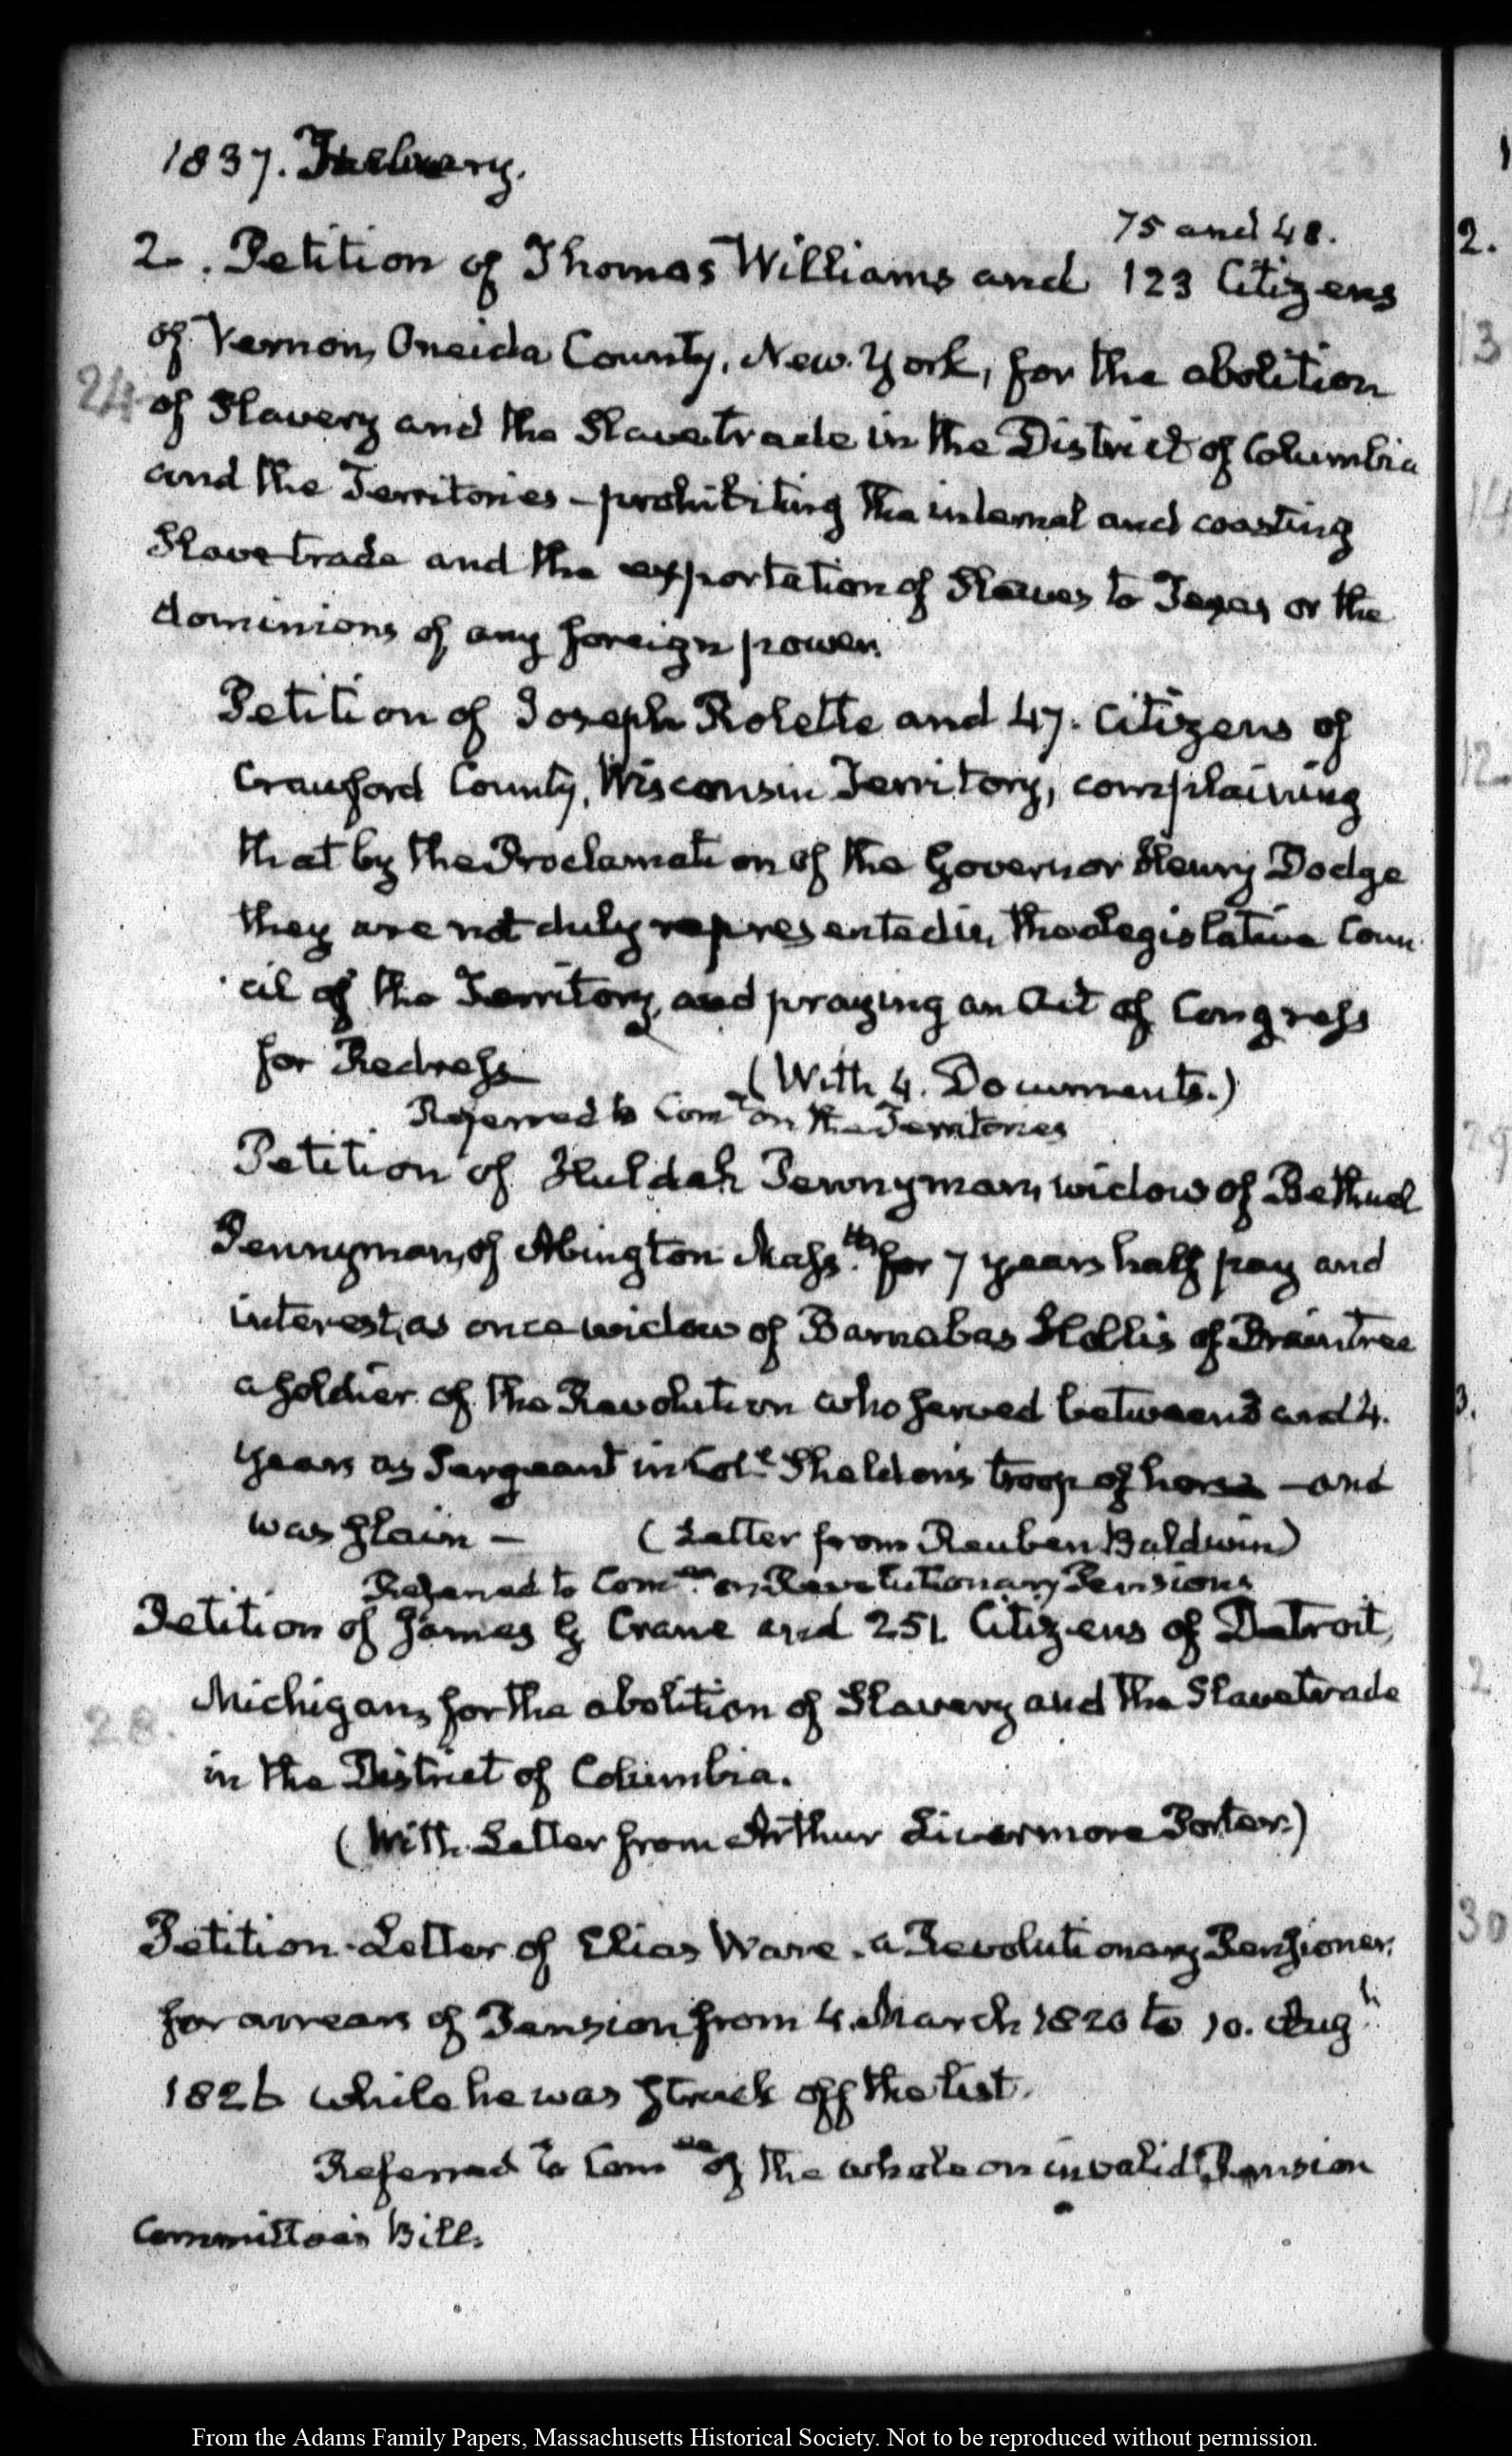 1837. February.
75 and 48.
2. Petition of Thomas Williams and 123 Citizens
of Vernon, Oneida County, New-York, for the abolition
24
of Slavery and the Slave trade in the District of Columbia
and the Territories – prohibiting the internal and coasting
Slave trade and the exportation of Slaves to Texas or the
dominions of any foreign power.
Petition of Joseph Rolette and 47. Citizens of
Crawford County, Wisconsin Territory, complaining
that by the Proclamation of the Governor Henry Dodge
they are not duly represented in the Legislative Coun
cil of the Territory, and praying an Act of Congress
for Redress (With 4. Documents.)
Referred to Comee on the Territories
Petition of Huldah Pennyman, widow of Bethuel
Pennyman, of Abington Mass.tts for 7 years half pay and
interest, as once widow of Barnabas Hollis of Braintree
a soldier of the Revolution who served between 3 and 4.
years as Sergeant in Col.l Sheldon's troop of horse – and
was slain – (Letter from Reuben Baldwin)
Referred to Comee on Revolutionary Pensions
Petition of James G Crane and 251. Citizens of Detroit,
Michigan, for the abolition of Slavery and the Slave trade
28.
in the District of Columbia.
(With Letter from Arthur Livermore Porter.)
Petition-Letter of Elias Ware. a Revolutionary Pensioner,
for arrears of Pension from 4. March 1820 to 10. Aug.t
1826 while he was struck off the list.
Referred to Comee of the whole on invalid Pension
Committee's Bill.
2.
13
14
12
3.
2
30
From the Adams Family Papers, Massachusetts Historical Society. Not to be reproduced without permission.